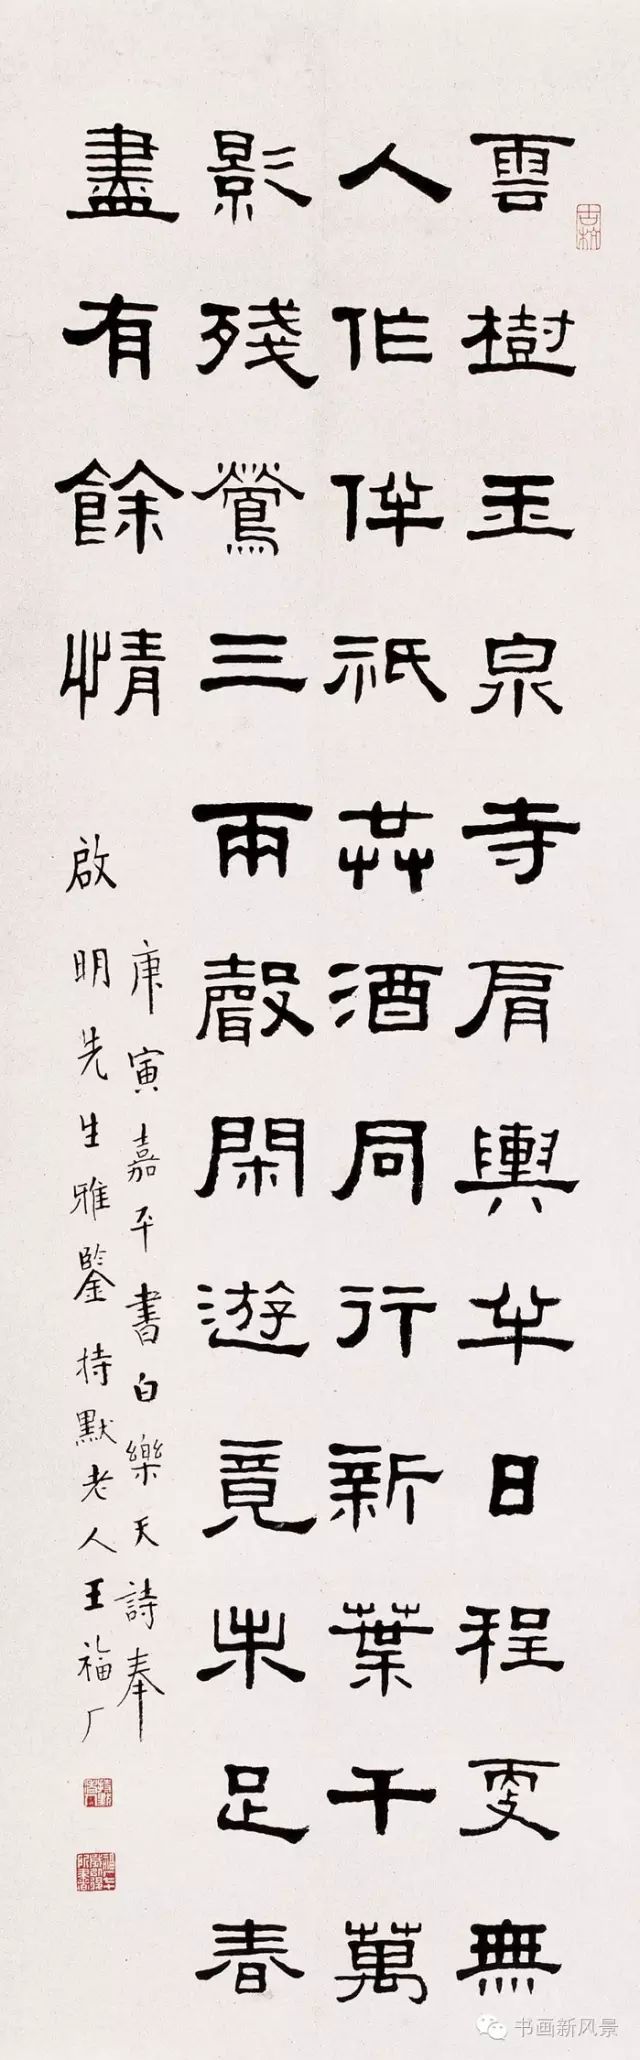 雲樹玉泉寺肩輿半日程更無
人作伴祇共酒同行新葉千萬
影殘鶯三兩聲閑遊竟未足春
盡有餘情
庚寅嘉平書白樂天詩奉
啟明先生雅鑒持默老人王福厂
古杭
书画新风景